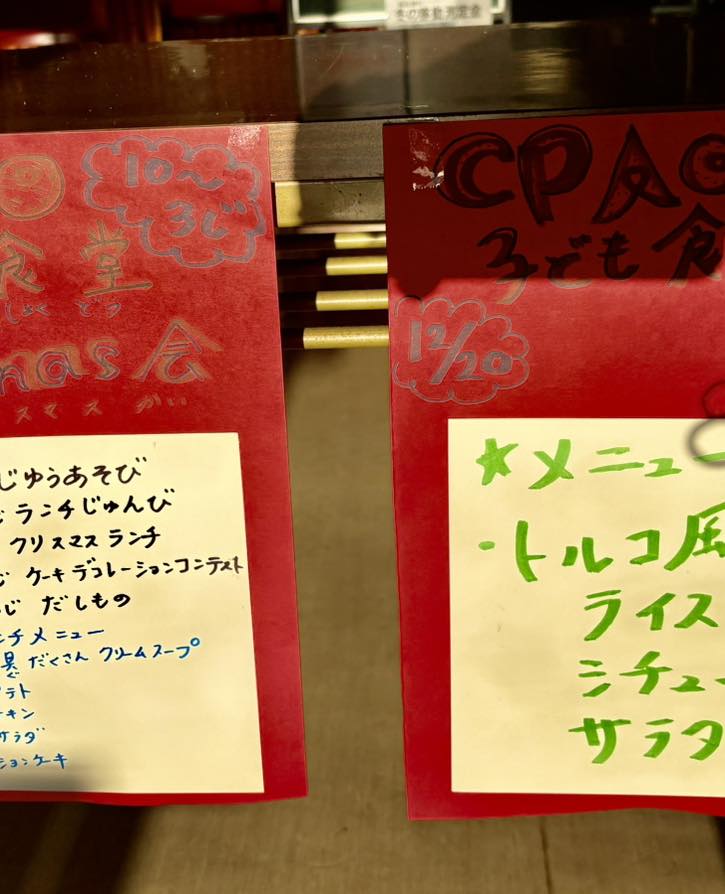 10〜
3じ
食堂
しょくどう
mas会
スマス かい
じゆうあそび
ランチじゅんび
クリスマス ランチ
ケーキデコレーションコンテスト
じ だしもの
チメニュー
具だくさん クリームスープ
ぐ
テト
キン
サラダ
ションケーキ
CPAO
子ども食
12/20
★メニュー
・トルコ風
ライス
シチュー
サラダ